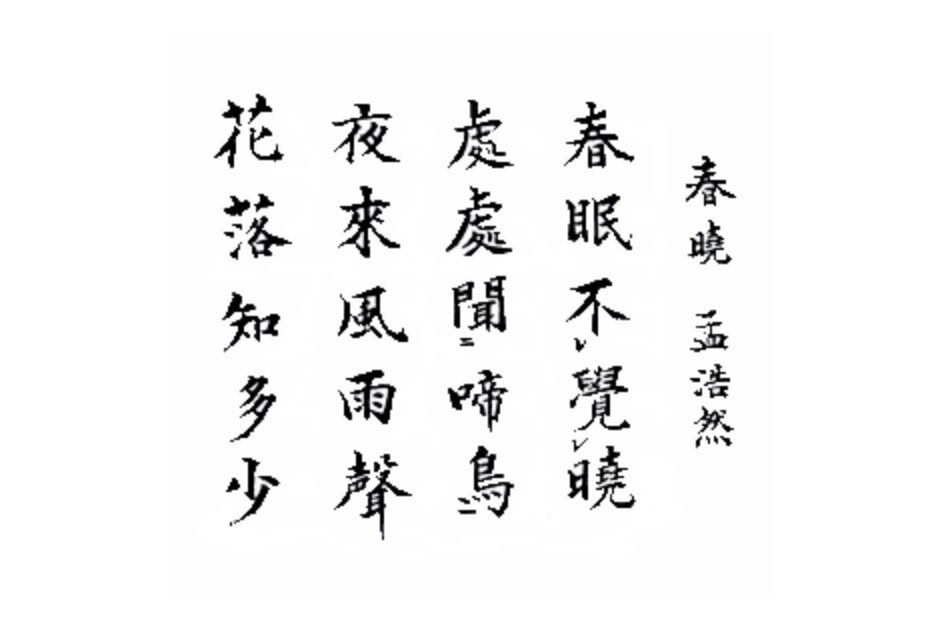 春曉 孟浩然
春眠不レ覺レ曉
處處聞二啼鳥一
夜來風雨聲
花落知多少